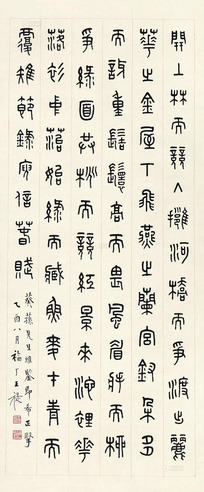 開上林而競入擁河橋而爭渡出麗
華之金屋下飛燕之蘭宮釵朵多
而訝重髻鬟高而畏風眉將柳
爭綠面共桃而競紅景來池裏華
落衫中苔始綠而藏魚麥才青而
覆雉節錄庾信春賦
蓀先生雅鑒即希正
乙酉八月福丁王禔